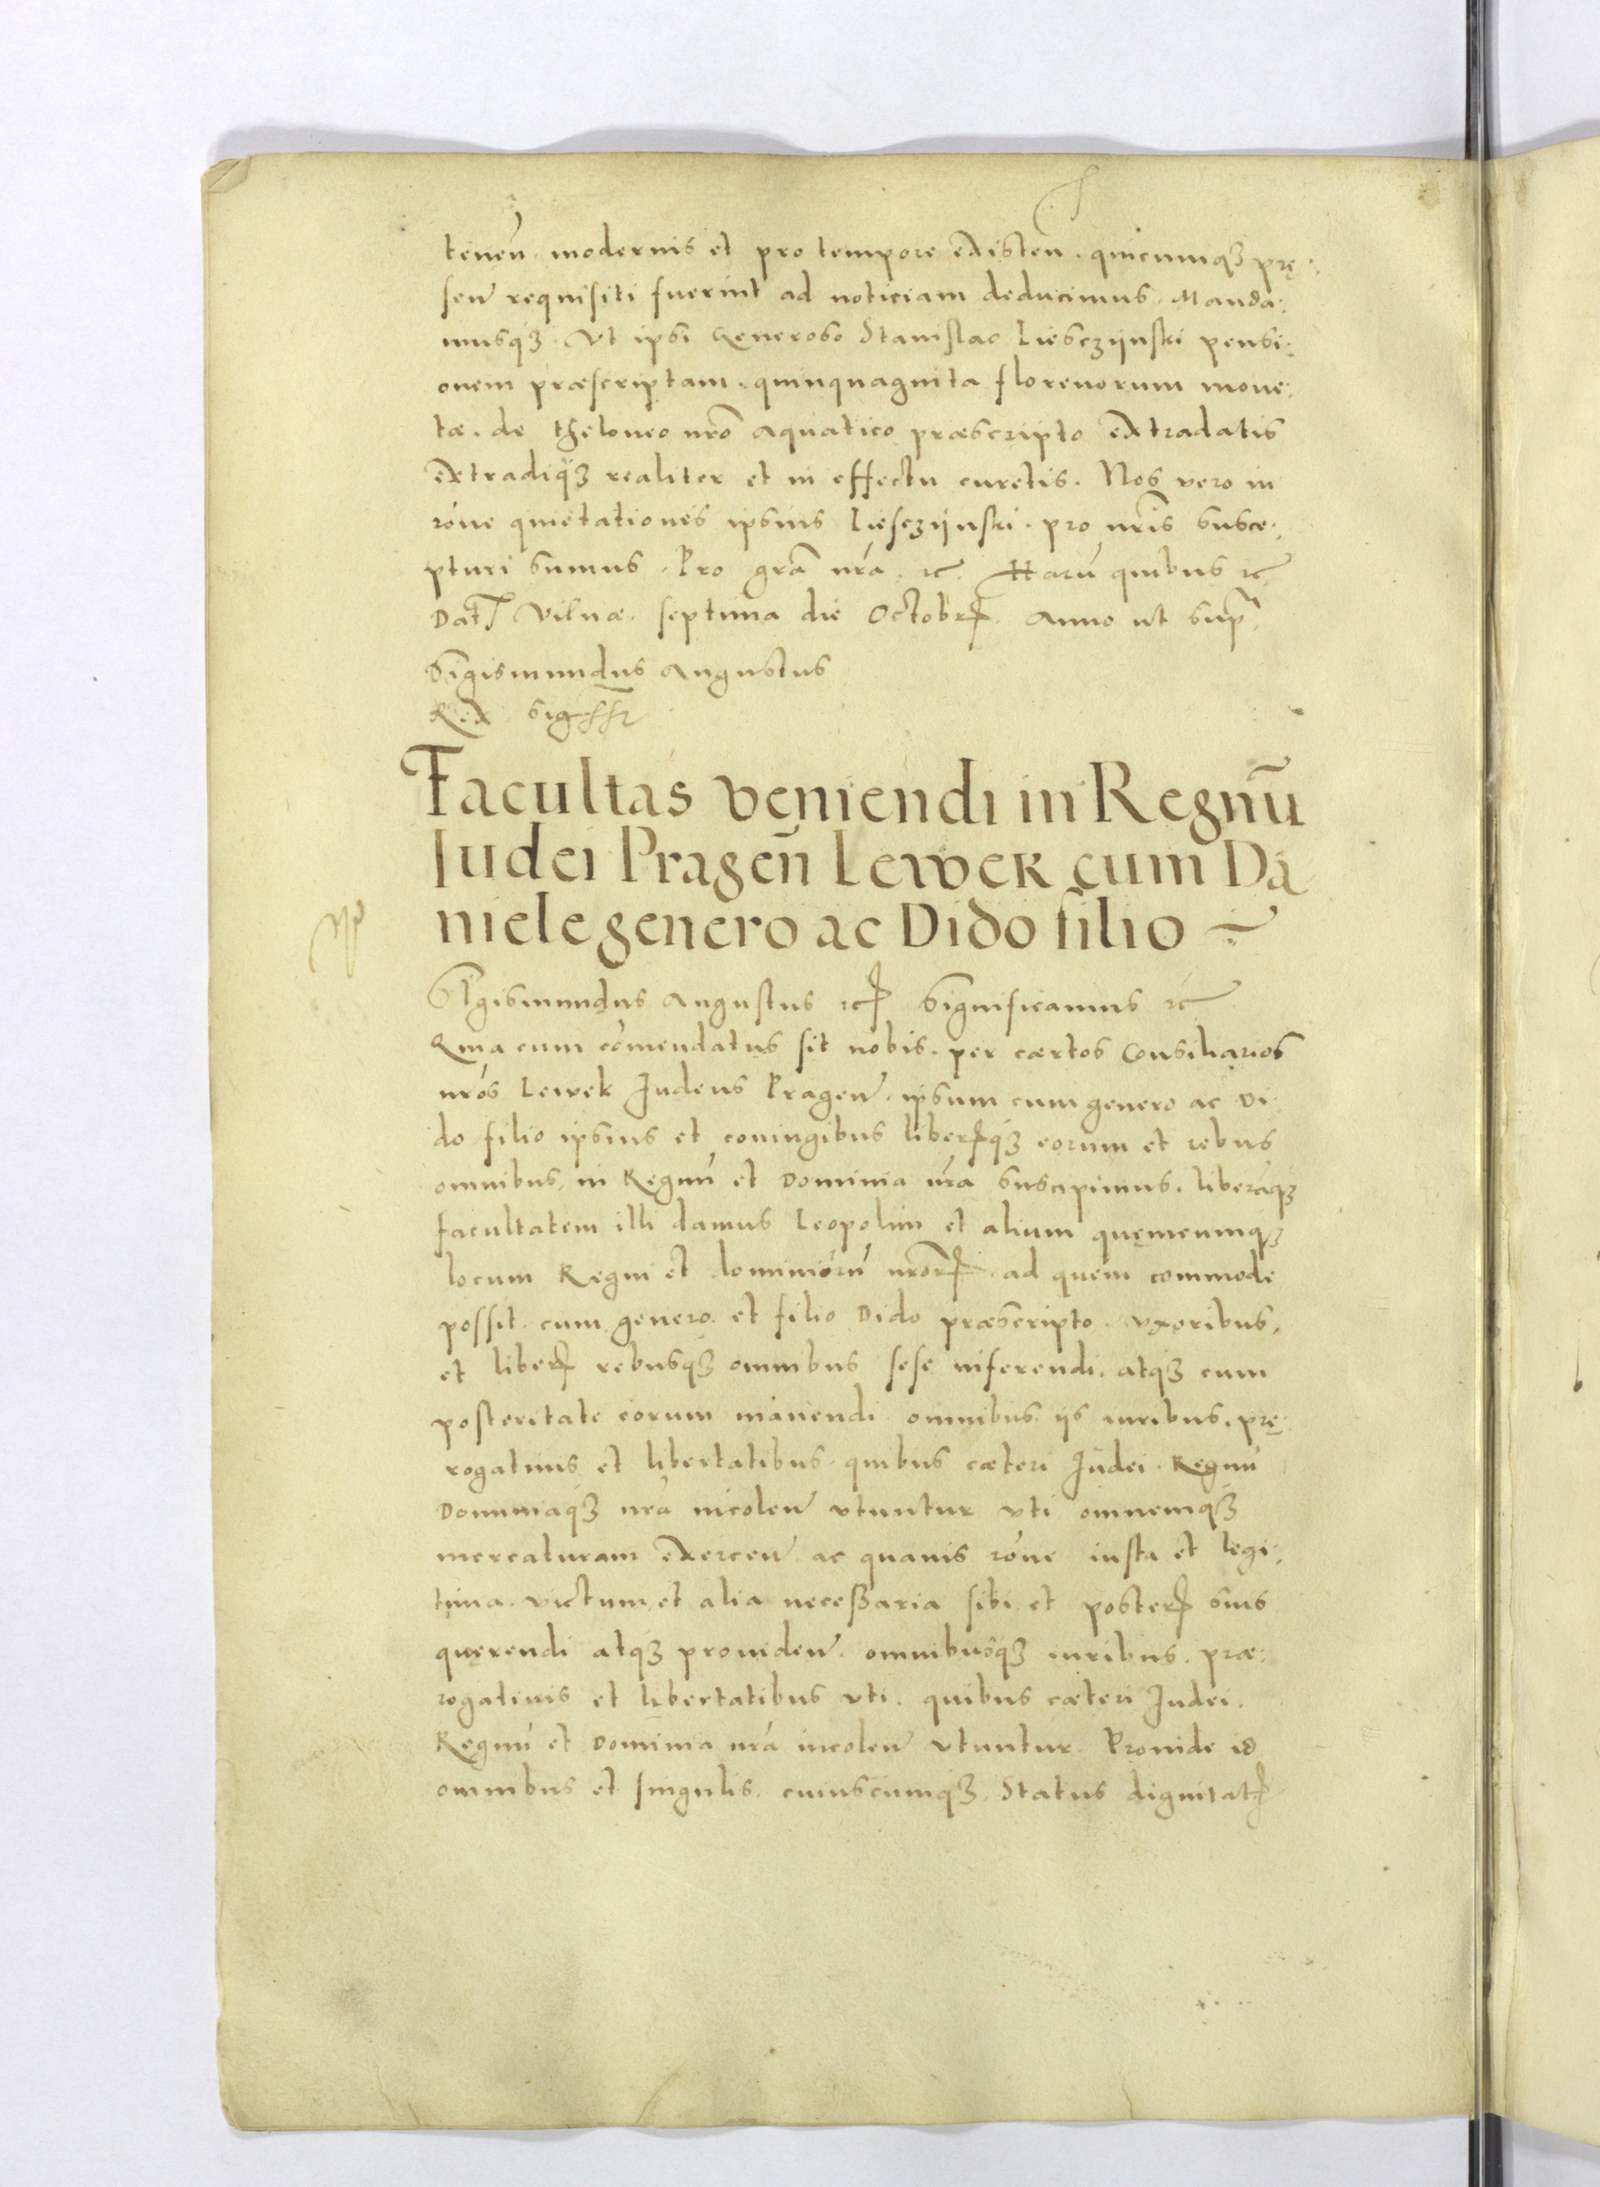 teneñ. modernis et pro tempore existeñ. quicumqꝫ prę:
señ requisiti fuerint ad noticiam deducimus. Manda:
musqꝫ. Vt ipsi Generoso Stanislao Liesczijnski pensi:
onem præscriptam. quinquaginta florenorum mone:
tæ. de theloneo nrõ aquatico præscripto extradatis
extradiqꝫ realiter et in effectu curetis. Nos vero in
rõne quietationes ipsius Liesczijnski. pro nrĩs susce:
pturi sumus. Pro grã nrã. ꝛc. Harũ quibus ꝛc
Dat̃ Vilnæ. septima die Octobrꝭ. Anno ut sup̃
Sigismundus Augustus
Rex
Facultas veniendi in Regnũ
Iudei Prageñ Lewek cum Da
niele genero ac Dido filio
Sigismundus Augustus ꝛcꝭ Significamus ꝛc
Quia cum cõmendatus sit nobis. per cærtos Consiliarios
nrõs Lewek Judeus Prageñ. ipsum cum genero ac Di
do filio ipsius et coniugibus liberꝭqꝫ eorum et rebus
omnibus, in Regnũ et Dominia nrã suscipimus. liberãqꝫ
facultatem illi damus Leopolim et alium quęmcumqꝫ
locum Regni et dominiorũ nrõrꝭ. ad quem commode
possit. cum genero. et filio Dido præscripto. vxoribus,
et liberꝭ rebusqꝫ omnibus sese inferendi. atqꝫ cum
posteritate eorum manendi omnibus iis iuribus. prę:
rogatiuis et libertatibus. quibus cæteri Judei. Regnũ
Dominiaqꝫ nrã incoleñ vtuntur vti omnemqꝫ
mercaturam exerceñ ac quauis rõne iusta et legi:
tima. victum et alia necessaria sibi et posterꝭ suis
quęrendi atqꝫ prouideñ. omnibusqꝫ iuribus. præ:
rogatiuis et libertatibus vti. quibus cæteri Judei.
Regnũ et Dominia nrã incoleñ vtuntur. Prouide id
omnibus et singulis. cuiuscumqꝫ. Status dignitatꝭ